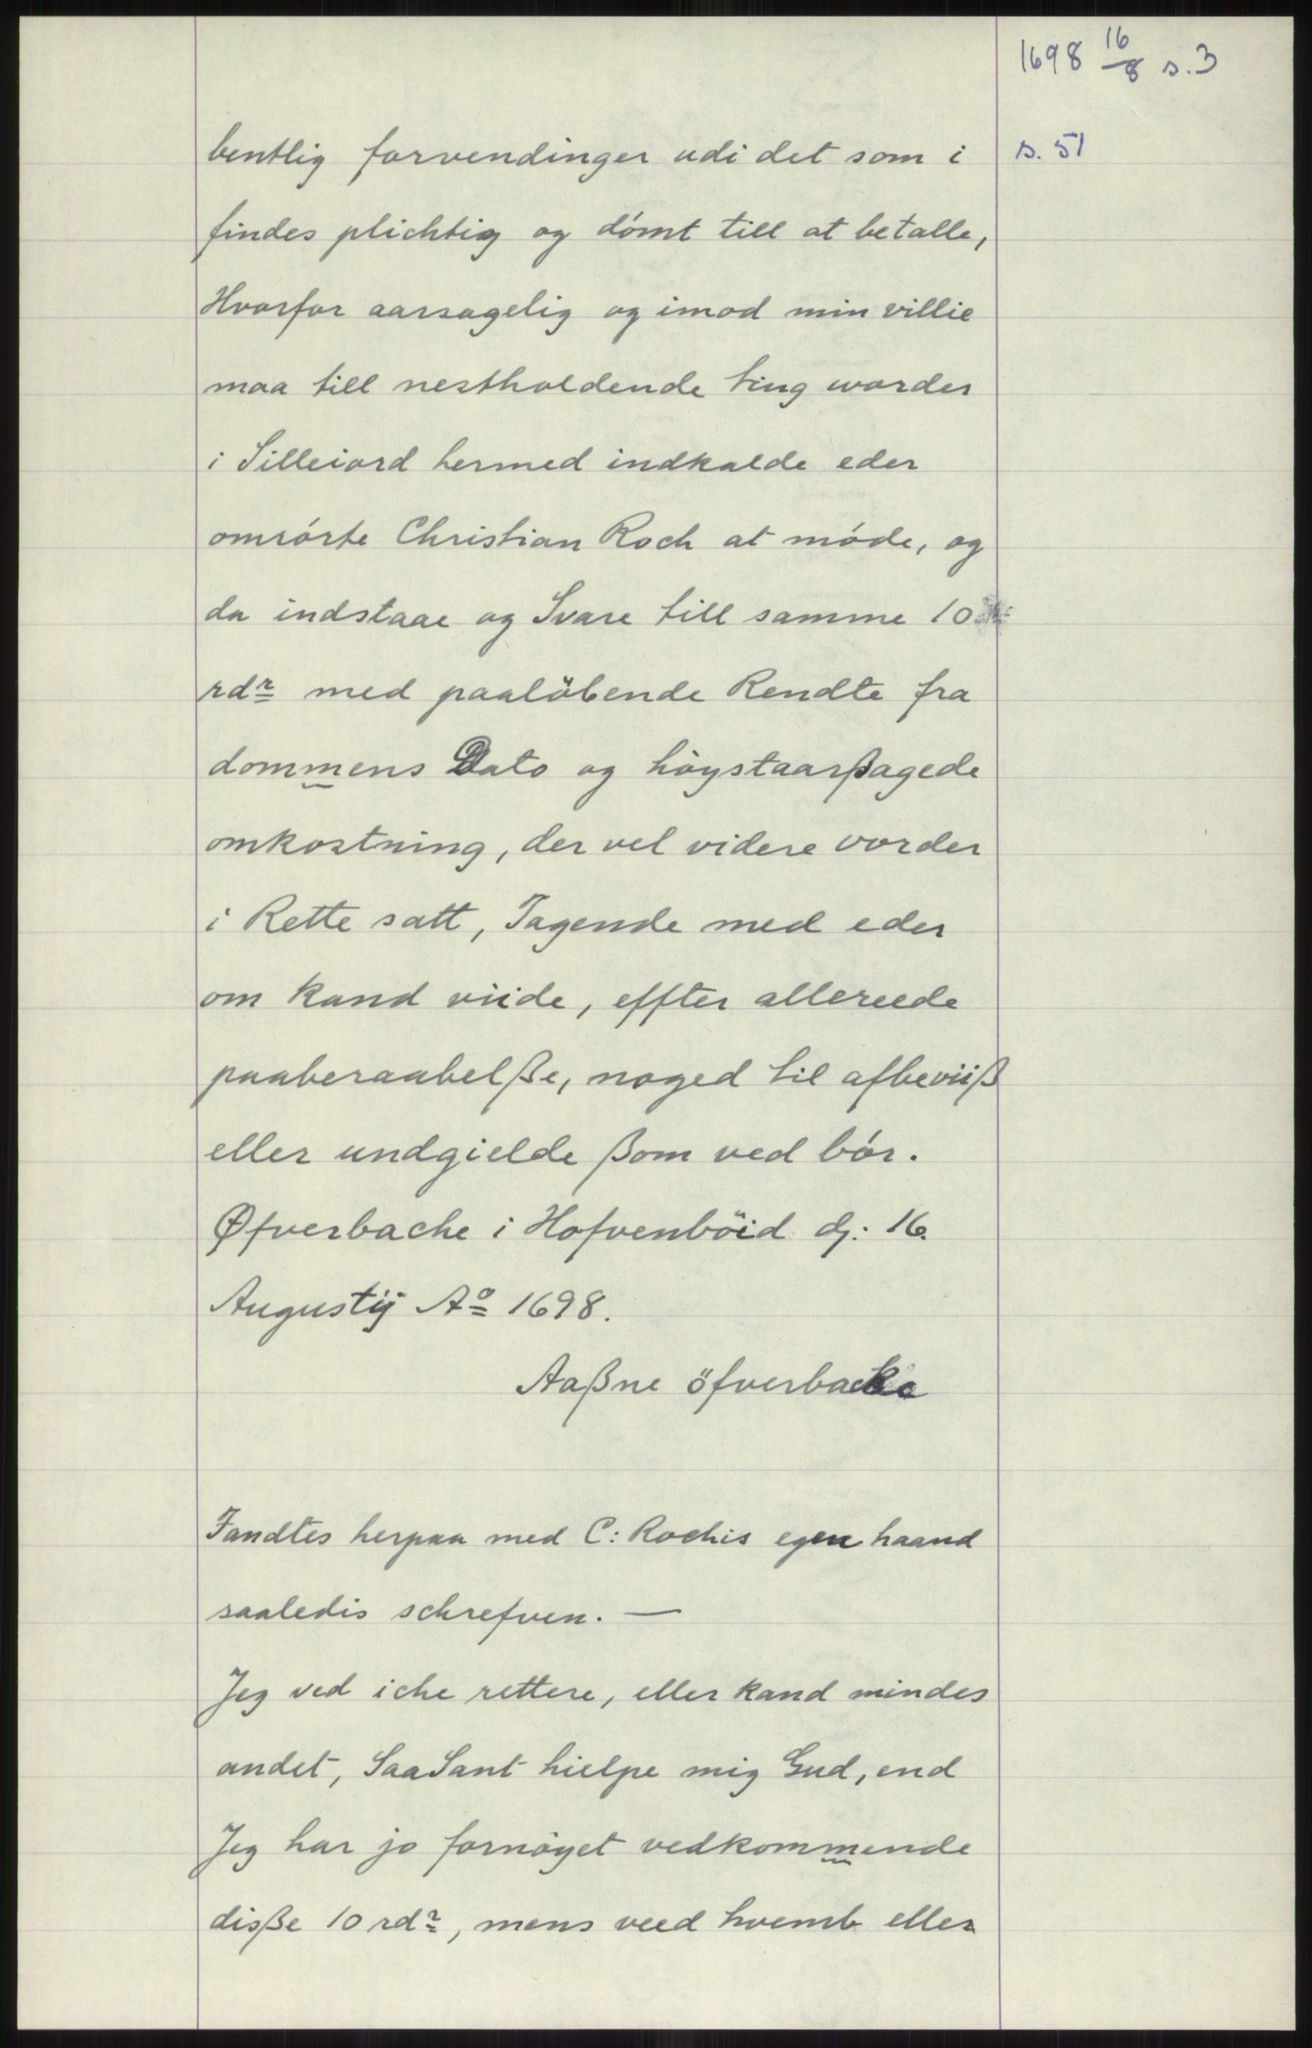 1698 16/8 s. 3
s. 51
bentlig forvendinger udi det som i
findes plichtig og dómt till at betalle,
Hvorfor aarsagelig og imod min villie
maa till nestholdende ting worder
i Silleiord hermed indkalde eder
omrórte Christian Roch at móde, og
da indstaae og Svare till samme 10
rdr med paalöbende Rendte fra
dommens Dato og hòystaarßagede
omkostning, der vel videre vorder
i Rette satt, Tagende med eder
om kand viide, effter allereede
paaberaabelße, noged til afbeviiß
eller undgielde ßom ved bór.
Øfverbache i Hofvenböid dj: 16.
Augustij Ao 1698.
Aaßne öfverbacke
Fandtes herpaa med C: Rochis egen haand
saaledis schrefven. —
Jeg ved iche rettere, eller kand mindes
andet, SaaSant hielpe mig Gud, end
Jeg har jo fornòyet vedkommende
disße 10 rdr, mens veed hvemb eller